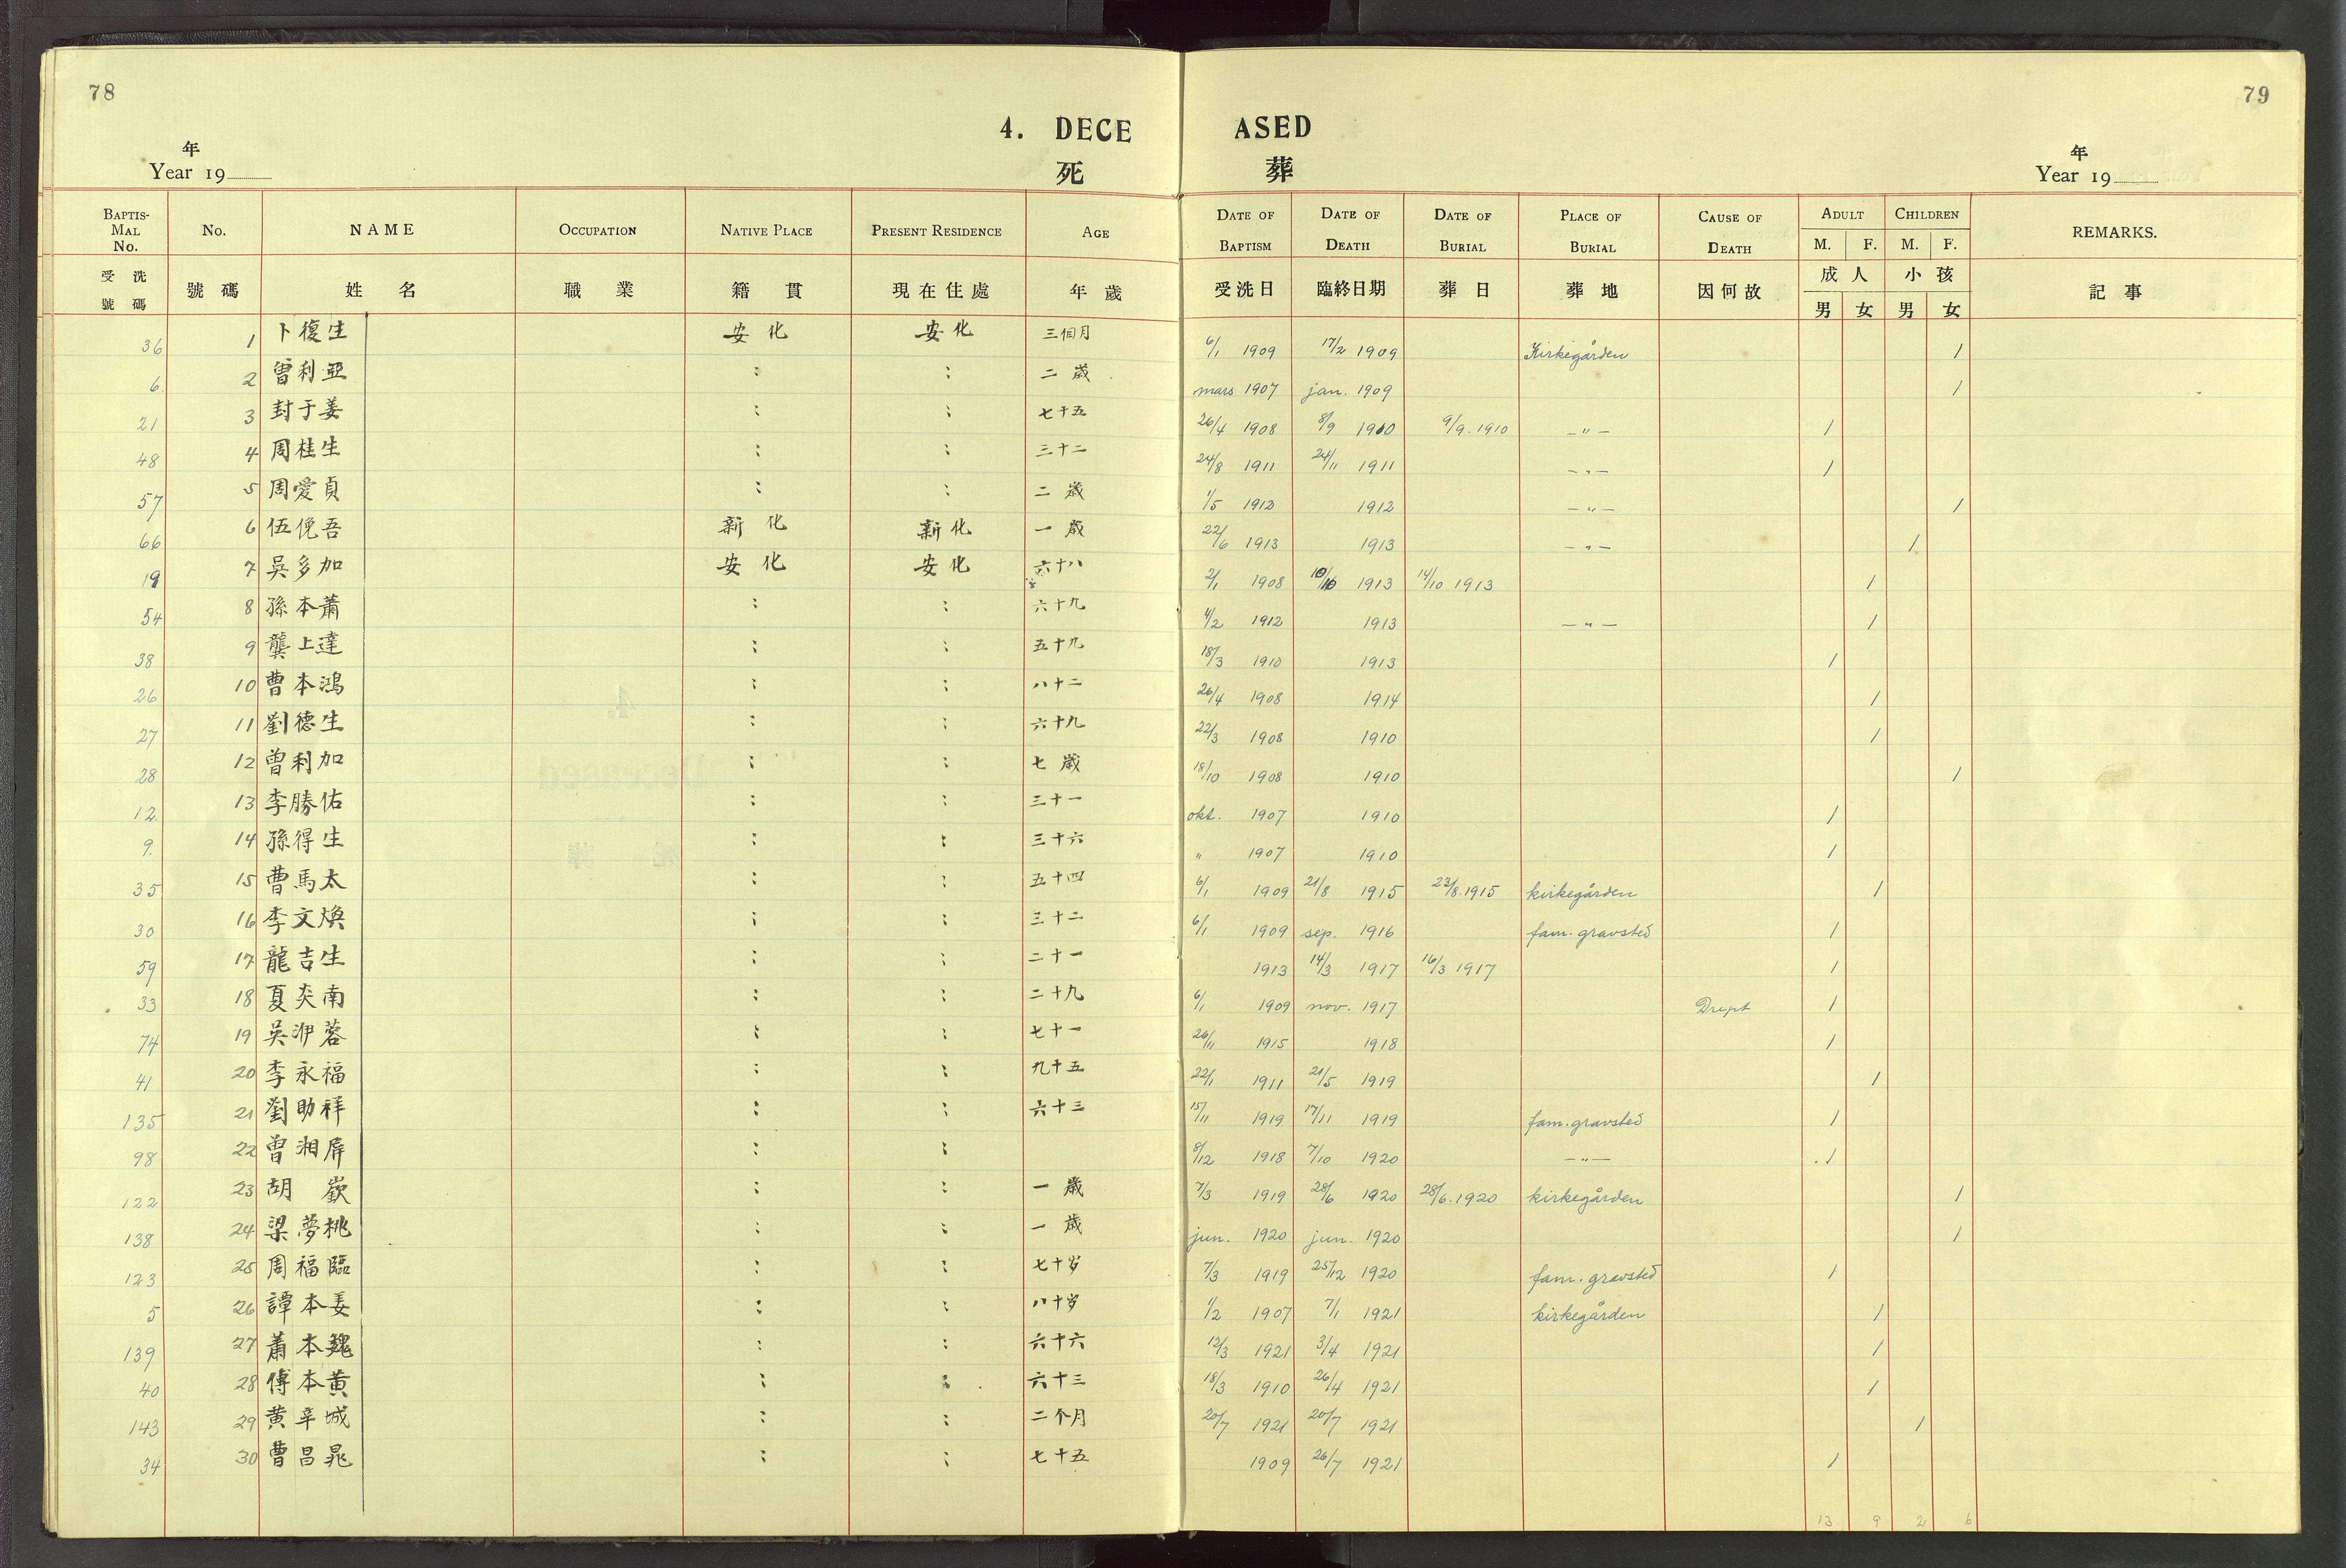 78
79
4. DECE ASED
死 葬
年
Year 19
年
Year 19
BAPTIS-MAL No. No. NAME OCCUPATION NATIVE PLACE PRESENT RESIDENCE AGE DATE OF BAPTISM DATE OF DEATH DATE OF BURIAL PLACE OF BURIAL CAUSE OF DEATH ADULT M. F. CHILDREN M. F. REMARKS.
受洗號碼 號碼 姓名 職業 籍貫 現在住處 年歲 受洗日 臨終日期 葬日 葬地 因何故 成人 男 女 小孩 男 女 記事
36 1 卜復生 安化 安化 三個月 6/1 1909 17/2 1909 Kirkegården 1
6. 2 曾利亞 : : 二歲 mars 1907 jan. 1909 1
21 3 封于姜 : : 七十五 26/4 1908 8/9 1910 9/9. 1910 -"- 1
48 4 周桂生 : : 三十二 24/8 1911 24/11 1911 -"- 1
57 5 周愛貞 : : 二歲 1/5 1912 1912 -"- 1
66 6 伍俛吾 新化 新化 一歲 22/6 1913 1913 -"- 1
19 7 吳多加 安化 安化 六十八 2/1 1908 1913 14/10 1913 1
54 8 孫本蕭 : : 六十九 4/2 1912 1913 -"- 1
38 9 龔上達 : : 五十九 18/3 1910 1913 1
26 10 曹本鴻 : : 八十二 26/4 1908 1914 1
27 11 劉德生 : : 六十九 22/3 1908 1910 1
28 12 曾利加 : : 七歲 18/10 1908 1910 1
12. 13 李勝佑 : : 三十一 okt. 1907 1910 1
9. 14 孫得生 : : 三十六 " 1907 1910 1
35 15 曹馬太 : : 五十四 6/1 1909 21/8 1915 23/8. 1915 kirkegården 1
30 16 李文煥 : : 三十二 6/1 1909 sep. 1916 fam. gravsted 1
59 17 龍吉生 : : 二十一 1913 14/3 1917 16/3 1917 1
33 18 夏炎南 : : 二十九 6/1 1909 nov. 1917 Drept 1
74 19 吳洢蓉 : : 七十一 26/11 1915 1918 1
41 20 李永福 : : 九十五 22/1 1911 21/5 1919 1
135 21 劉助祥 : : 六十三 15/11 1919 17/11 1919 fam. gravsted 1
98 22 曾湘屏 : : 8/12 1918 7/10 1920 -"- 1
122 23 胡 : : 一歲 7/3 1919 28/6 1920 28/6. 1920 kirkegården 1
138 24 梁夢桃 : : 一歲 jun. 1920 jun. 1920 1
123 25 周福臨 : : 七十岁 7/3 1919 25/12 1920 fam. gravsted 1
5 26 譚本姜 : : 八十岁 1/2 1907 7/1 1921 kirkegården 1
139 27 蕭本魏 : : 六十六 12/3 1921 3/4 1921 1
40 28 傅本黄 : : 六十三 18/3 1910 26/4 1921 1
143 29 黄辛城 : : 二个月 20/7 1921 20/7 1921 1
34 30 曹昌晁 : : 七十五 1909 26/7 1921 1
13 9 2 6